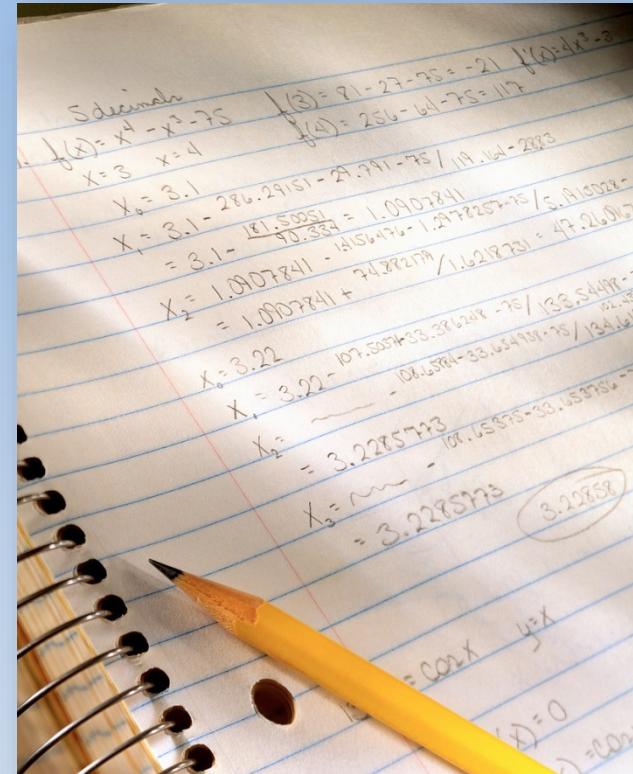 5 decimals
f(x) = x⁴ - x³ - 75 f(3) = 81 - 27 - 75 = -21 f'(x) = 4x³ - 3
x = 3 x = 4 f(4) = 256 - 64 - 75 = 117
X₀ = 3.1
X₁ = 3.1 - 286.29151 - 29.791 - 75 / 119.164 - 2883
= 3.1 - 181.50051 / 90.334 = 1.0907841
X₂ = 1.0907841 - 1.4156476 - 1.2978257 - 75 / 5.1915028 -
= 1.0907841 + 74.882179 / 1.6218731 = 47.26
X₀ = 3.22
X₁ = 3.22 - 107.5057 - 33.386248 - 75 / 133.54498 -
X₂ = - 108.65884 - 33.654938 - 75 / 134.61
= 3.2285773
X₃ = - 108.65375 - 33.653756 -
= 3.2285773 3.22858
= cosx y = x
(x) = 0
) = cos